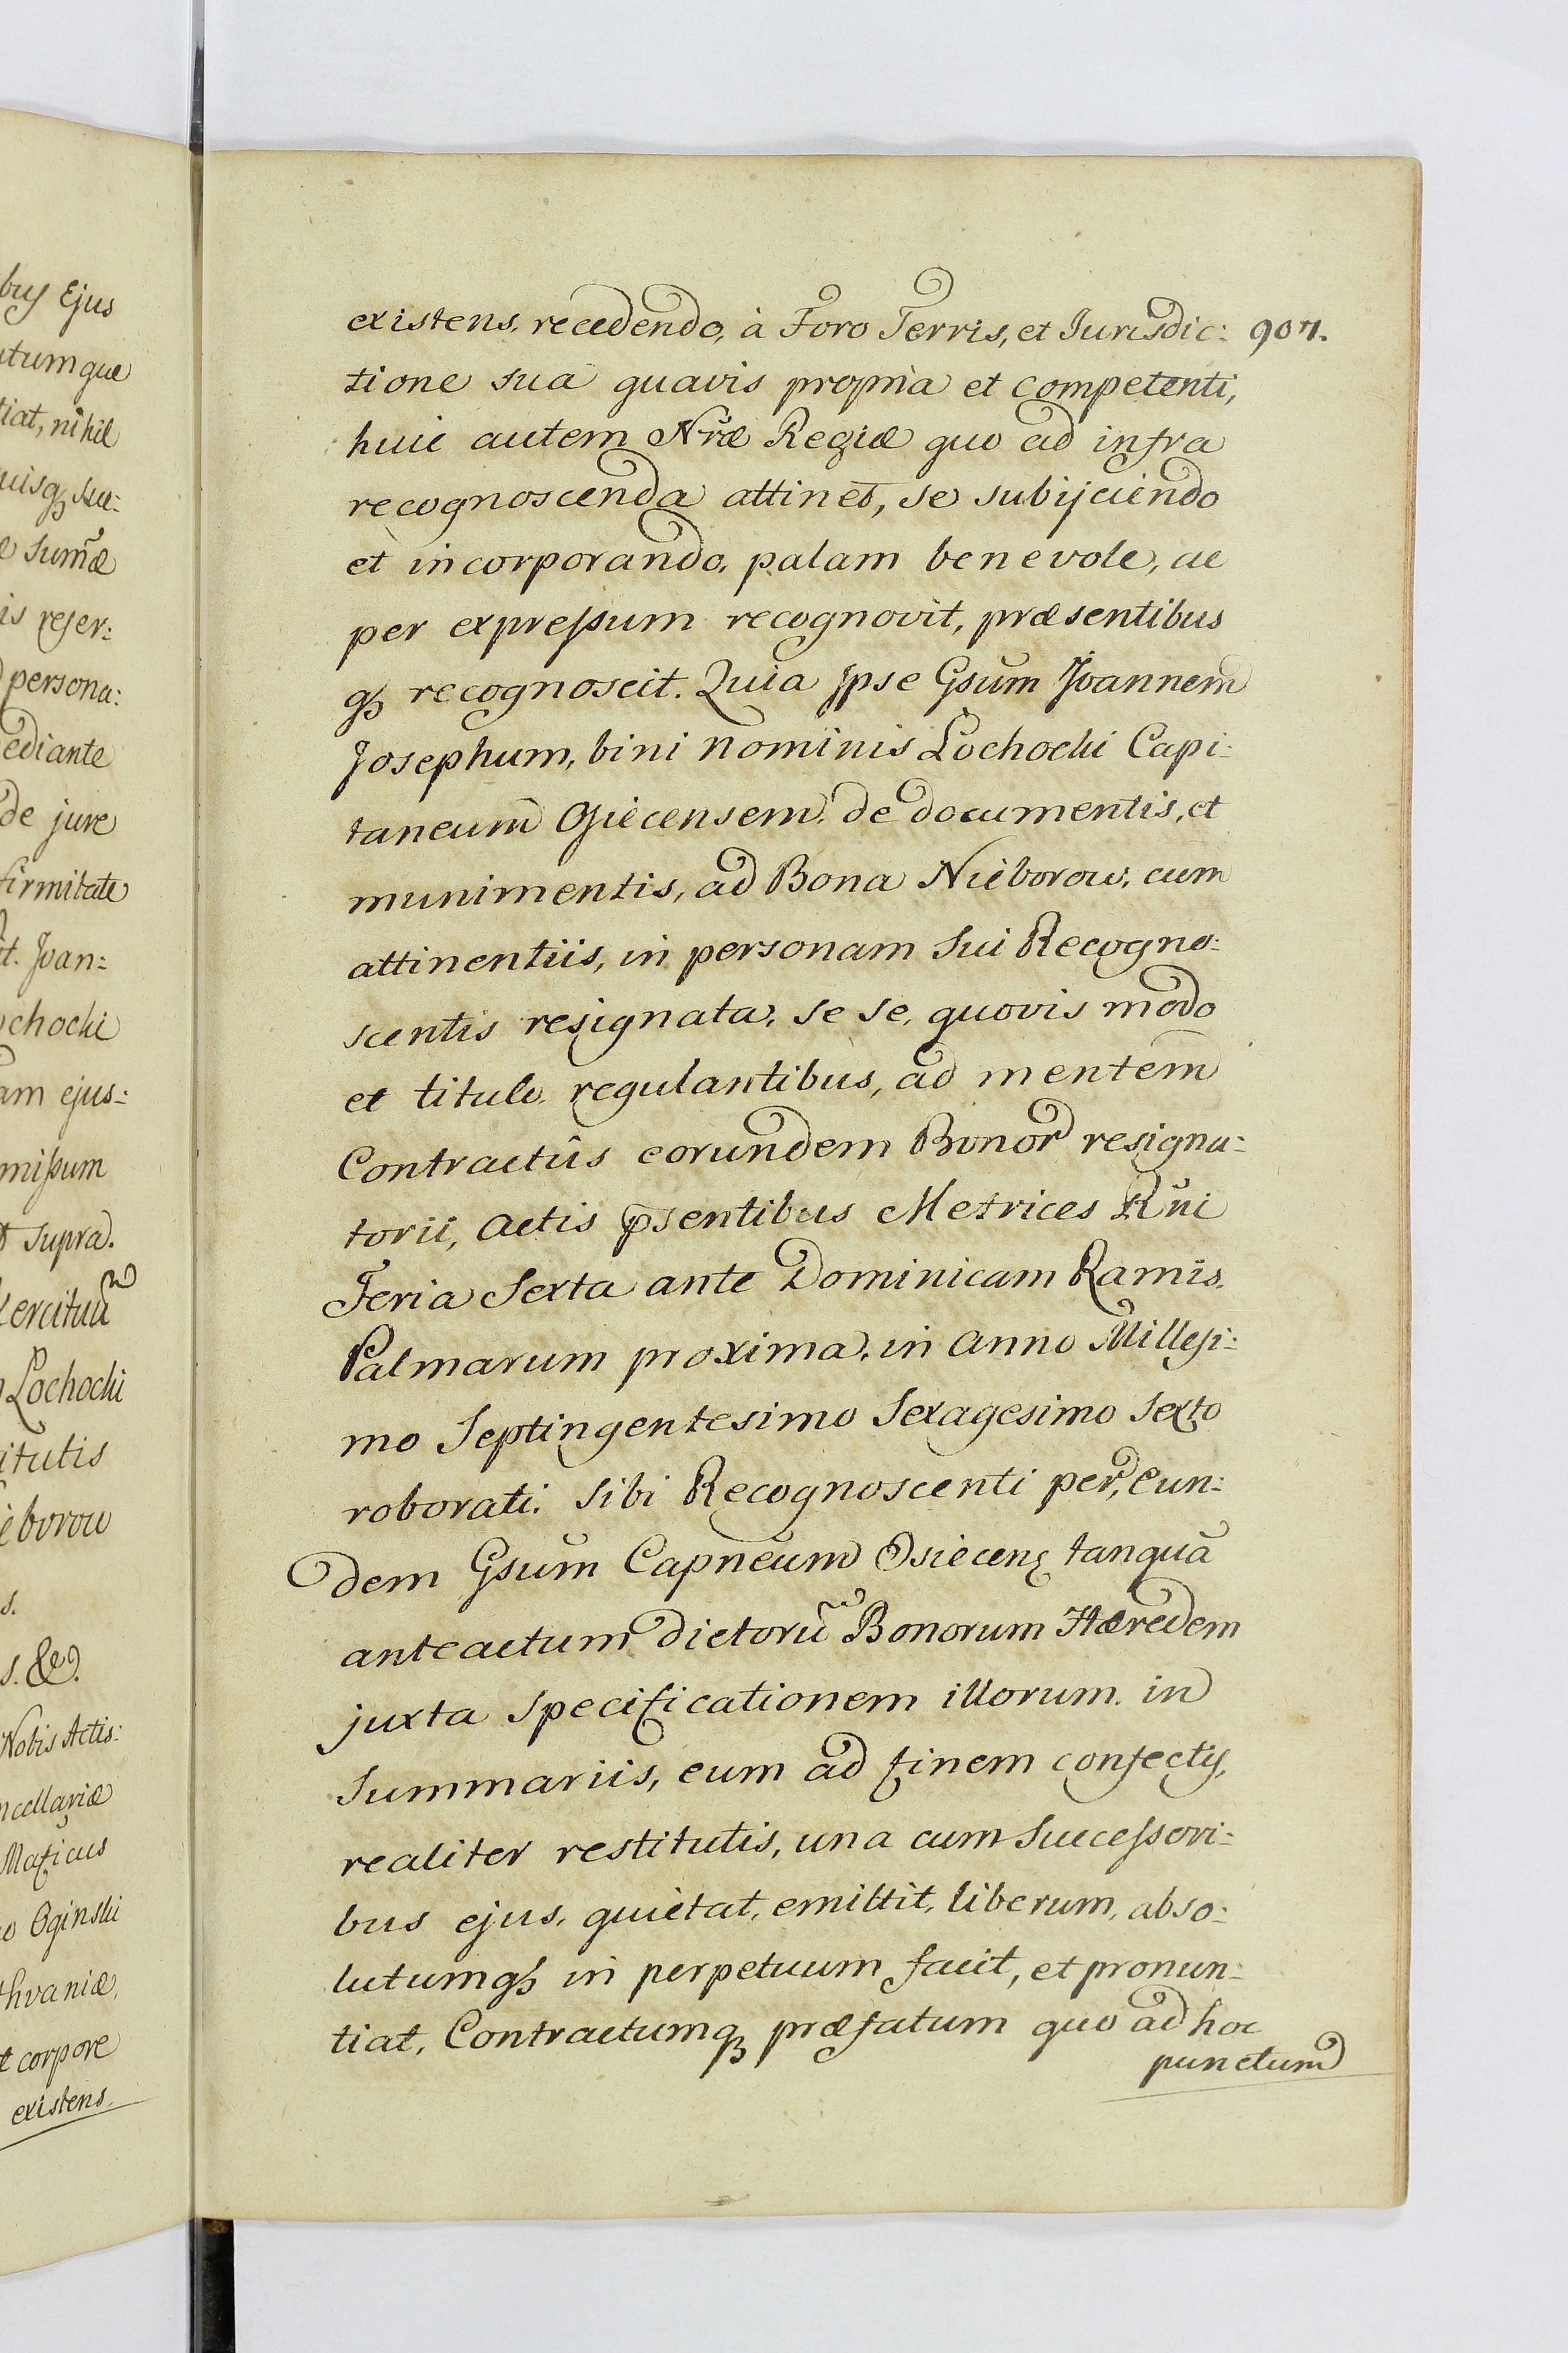 bus Ejus
utumque
tiat, nihil
uisqȝ suc:
e Sum̃æ
is reser:
persona:
ediante
de jure
firmitate
t. Joan:
ochocki
am ejus:
missum
supra.
xercituũ
Lochocki
itutis
ieborow
s.
s. &.
Nobis Actis:
ncellariæ
Maticus
o Oginski
thvaniæ.
t corpore
existens.
907.
existens, recedendo, à Foro Terris, et Jurisdic:
tione sua quavis propria et competenti,
huic autem Nr̃æ Regiæ quo ad infra
recognoscenda attinet, se subijciendo
et incorporando, palam benevole, ac
per expressum recognovit, præsentibus
qȝ recognoscit. Quia Ipse Gsũm Joannem
Josephum, bini nominis Lochocki Capi:
taneum Osiecensem, de documentis, et
munimentis, ad Bona Nieborow, cum
attinentiis, in personam sui Recogno:
scentis resignata, se se, quovis modo
et titulo, regulantibus, ad mentem
Contractûs eorundem Bonor̃ resigna:
torii, actis p̃sentibus Metrices Rñi
Feria Sexta ante Dominicam Ramis,
Palmarum proxima, in anno Millesi:
mo Septingentesimo Sexagesimo Sexto
roborati. Sibi Recognoscenti per, eun:
dem Gsũm Capnẽum Osiecenȝ tanquã
anteactum dictorũ Bonorum Hæredem
juxta specificationem illorum, in
Summariis, eum ad finem confectis,
realiter restitutis, una cum Successori:
bus ejus, quietat, emittit, liberum, abso:
lutumqȝ in perpetuum facit, et pronun:
tiat, Contractumqȝ præfatum quo ad hoc
punctum